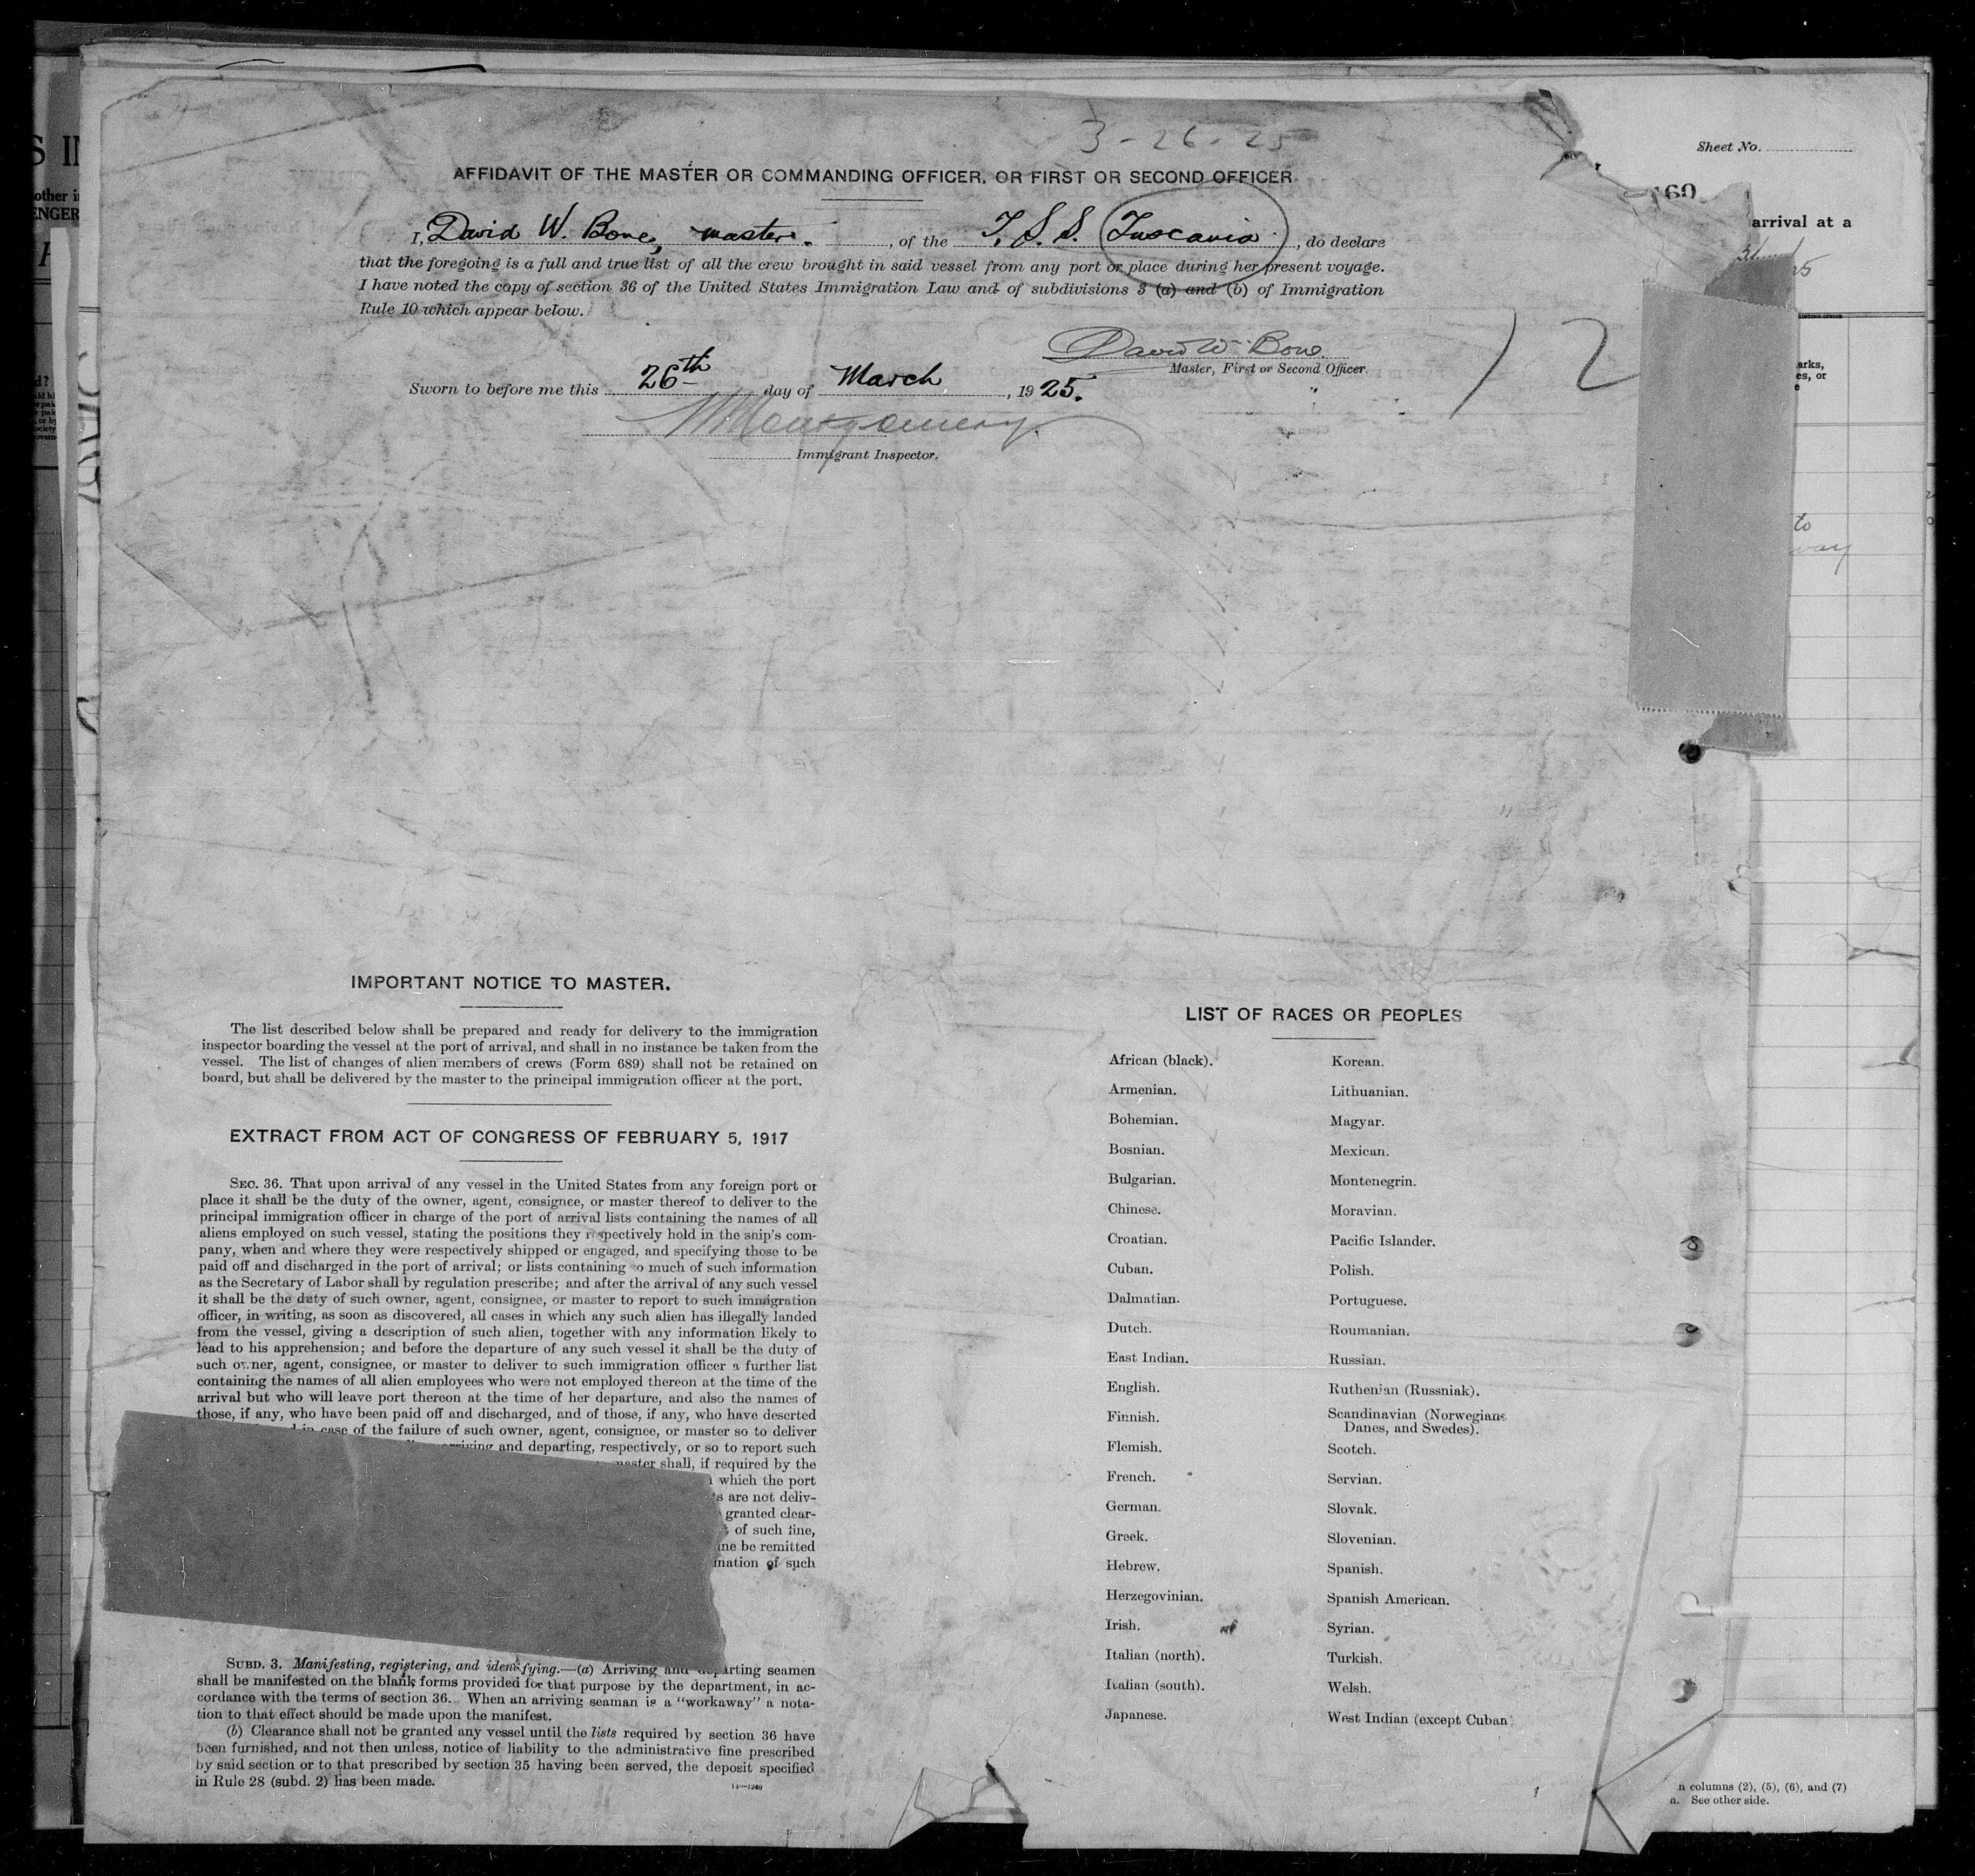 3-26-25
AFFIDAVIT OF THE MASTER OR COMMANDING OFFICER, OR FIRST OR SECOND OFFICER
I, David W. Bone, master. , of the T. S. S. Tuscania , do declare
that the foregoing is a full and true list of all the crew brought in said vessel from any port or place during her present voyage.
I have noted the copy of section 36 of the United States Immigration Law and of subdivisions 3 (a) and (b) of Immigration
Rule 10 which appear below.
David W. Bone.
Master, First or Second Officer
Sworn to before me this 26th day of March , 19 25.
Montgomery.
Immigrant Inspector.
12
Sheet No.
arrival at a
IMPORTANT NOTICE TO MASTER.
The list described below shall be prepared and ready for delivery to the immigration
inspector boarding the vessel at the port of arrival, and shall in no instance be taken from the
vessel. The list of changes of alien members of crews (Form 689) shall not be retained on
board, but shall be delivered by the master to the principal immigration officer at the port.
EXTRACT FROM ACT OF CONGRESS OF FEBRUARY 5, 1917
SEC. 36. That upon arrival of any vessel in the United States from any foreign port or
place it shall be the duty of the owner, agent, consignee, or master thereof to deliver to the
principal immigration officer in charge of the port of arrival lists containing the names of all
aliens employed on such vessel, stating the positions they respectively hold in the ship's com-
pany, when and where they were respectively shipped or engaged, and specifying those to be
paid off and discharged in the port of arrival; or lists containing so much of such information
as the Secretary of Labor shall by regulation prescribe; and after the arrival of any such vessel
it shall be the duty of such owner, agent, consignee, or master to report to such immigration
officer, in writing, as soon as discovered, all cases in which any such alien has illegally landed
from the vessel, giving a description of such alien, together with any information likely to
lead to his apprehension; and before the departure of any such vessel it shall be the duty of
such owner, agent, consignee, or master to deliver to such immigration officer a further list
containing the names of all alien employees who were not employed thereon at the time of the
arrival but who will leave port thereon at the time of her departure, and also the names of
those, if any, who have been paid off and discharged, and of those, if any, who have deserted
in case of the failure of such owner, agent, consignee, or master so to deliver
arriving and departing, respectively, or so to report such
master shall, if required by the
which the port
are not deliv-
granted clear-
of such fine,
be remitted
of such
SUBD. 3. Manifesting, registering, and identifying.—(a) Arriving and departing seamen
shall be manifested on the blank forms provided for that purpose by the department, in ac-
cordance with the terms of section 36. When an arriving seaman is a "workaway" a nota-
tion to that effect should be made upon the manifest.
(b) Clearance shall not be granted any vessel until the lists required by section 36 have
been furnished, and not then unless, notice of liability to the administrative fine prescribed
by said section or to that prescribed by section 35 having been served, the deposit specified
in Rule 28 (subd. 2) has been made.
14—1240
LIST OF RACES OR PEOPLES
African (black).
Armenian.
Bohemian.
Bosnian.
Bulgarian.
Chinese.
Croatian.
Cuban.
Dalmatian.
Dutch.
East Indian.
English.
Finnish.
Flemish.
French.
German.
Greek.
Hebrew.
Herzegovinian.
Irish.
Italian (north).
Italian (south).
Japanese.
Korean.
Lithuanian.
Magyar.
Mexican.
Montenegrin.
Moravian.
Pacific Islander.
Polish.
Portuguese.
Roumanian.
Russian.
Ruthenian (Russniak).
Scandinavian (Norwegians
Danes, and Swedes).
Scotch.
Servian.
Slovak.
Slovenian.
Spanish.
Spanish American.
Syrian.
Turkish.
Welsh.
West Indian (except Cuban
columns (2), (5), (6), and (7)
See other side.